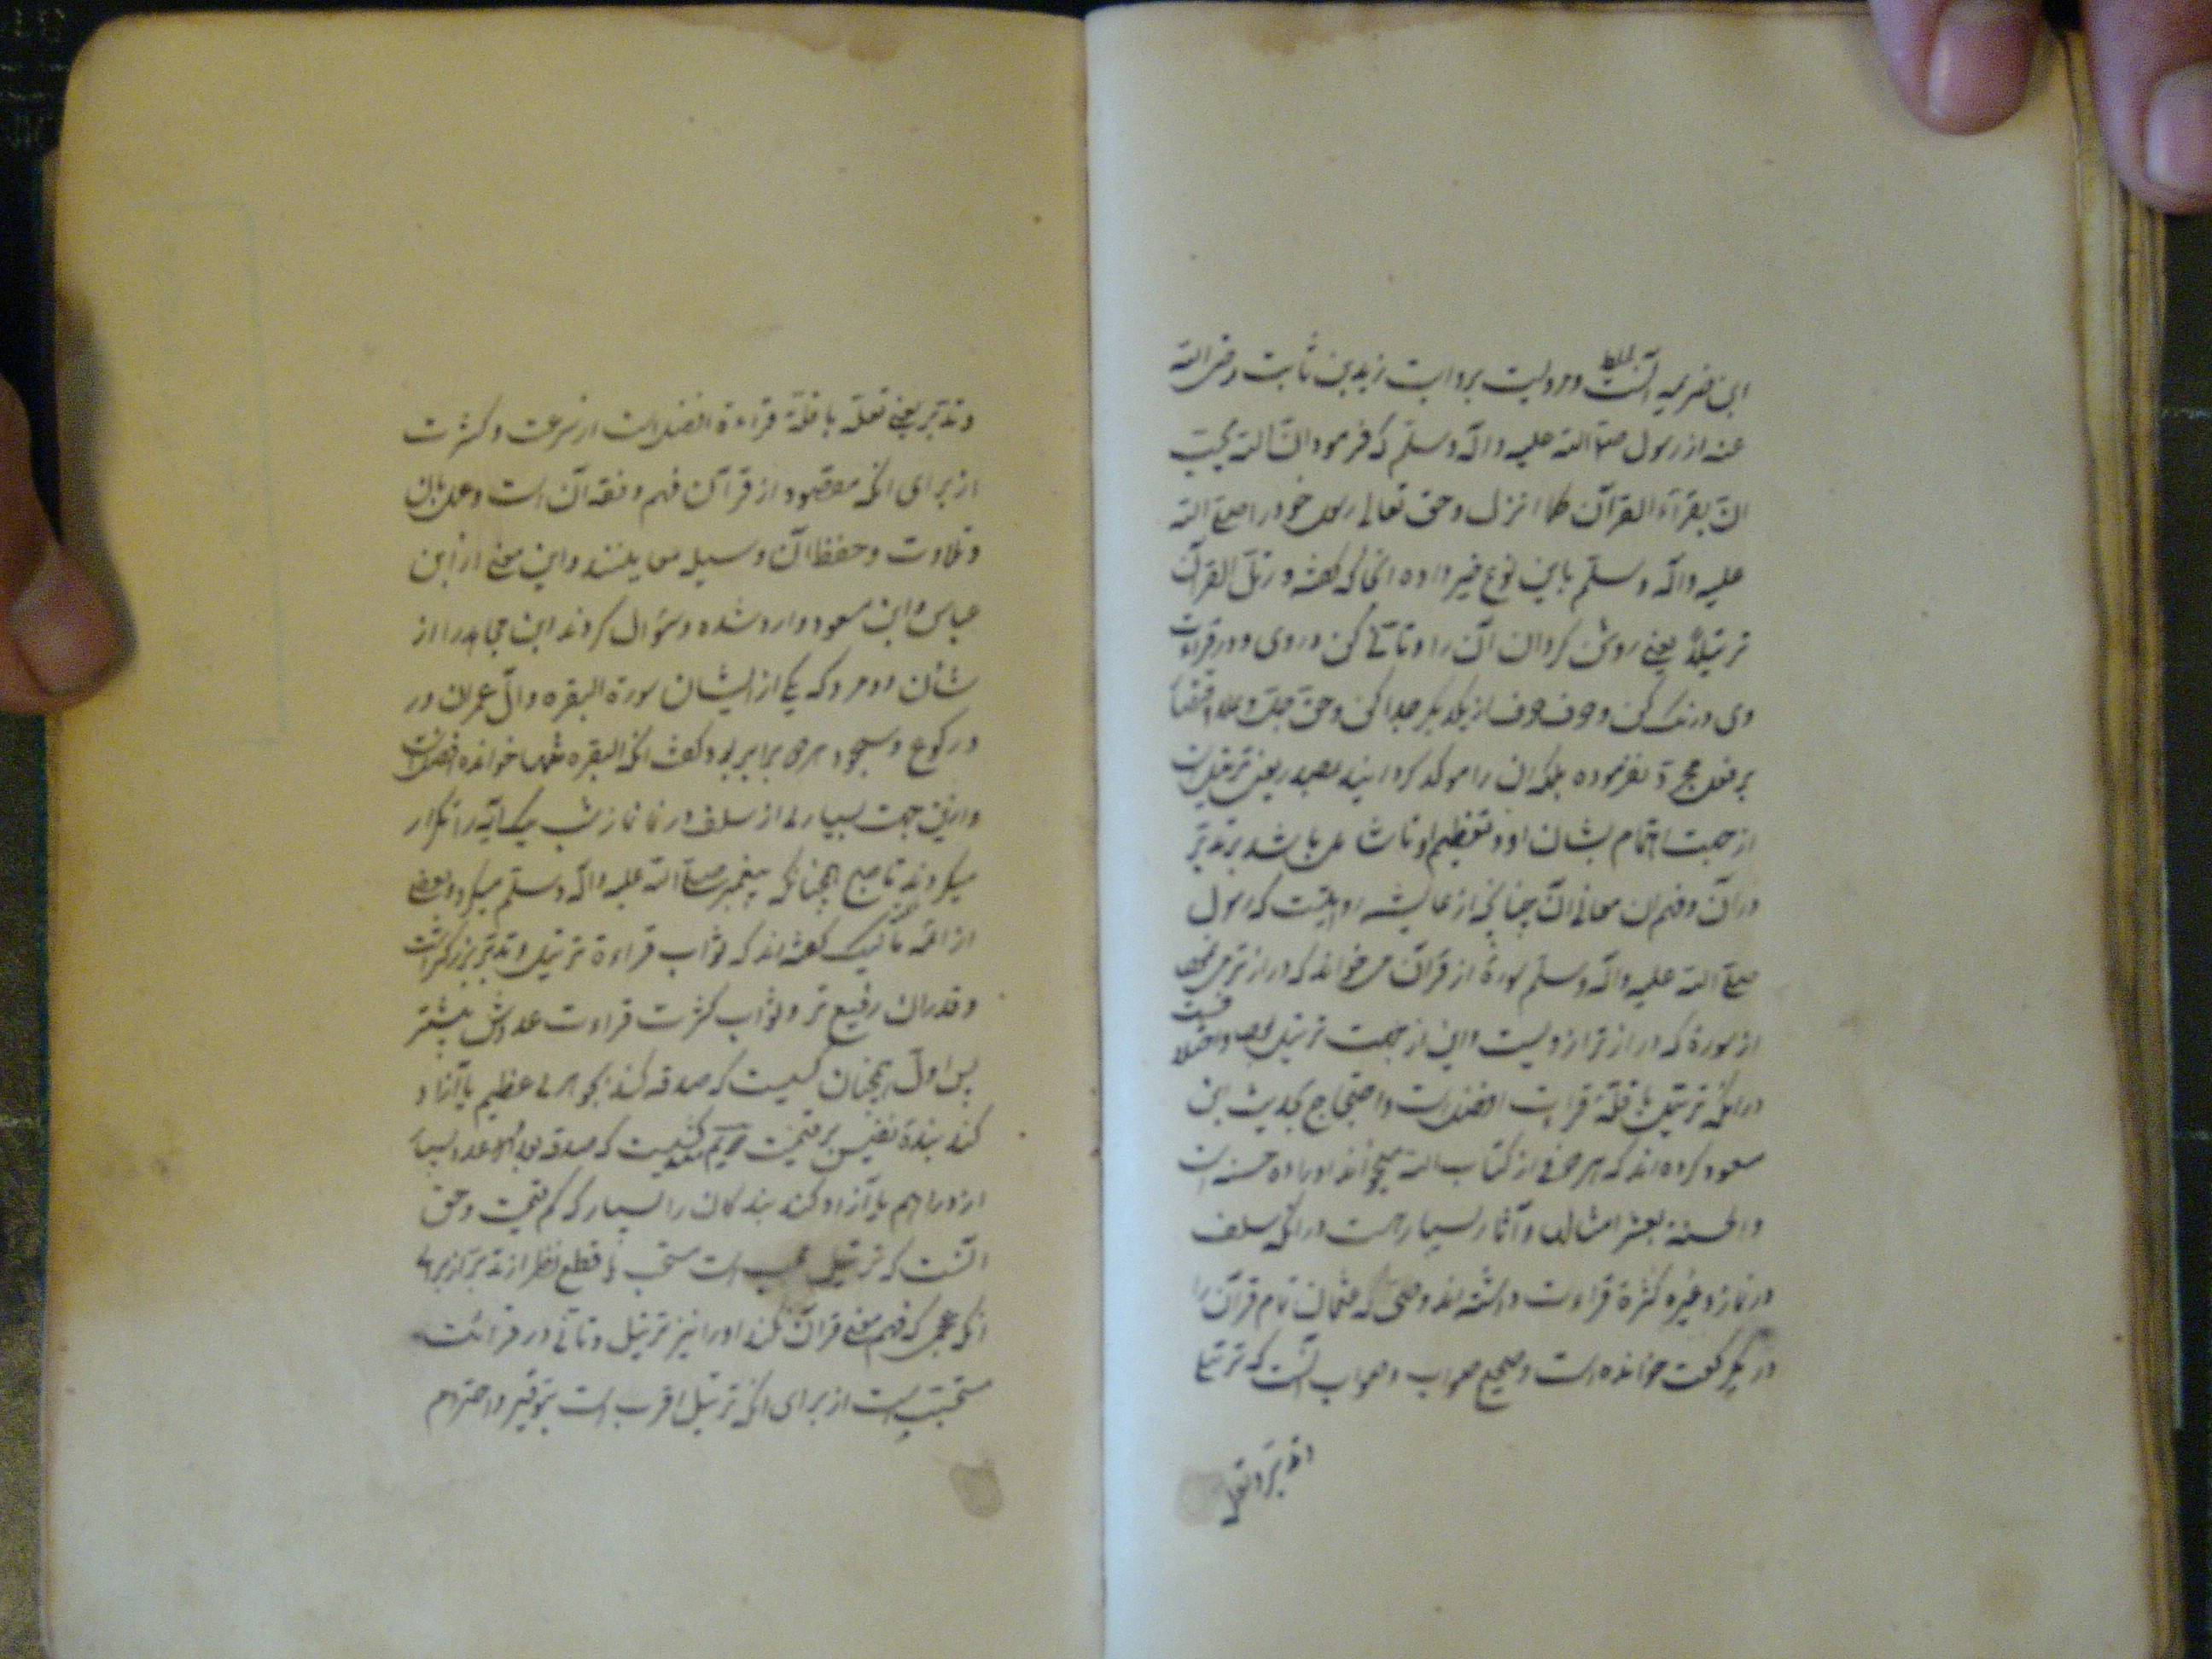 ابن خزیمه آنست و مرویست بروایت زید بن ثابت رضی الله
عنه از رسول صلی الله علیه واله وسلم که فرمود ان الله یحب
ان یقرأ القرآن کما انزل و حق تعالی رسول خود را صلی الله
علیه واله وسلم باین نوع خبر داده انجا که گفته و رتل القرآن
ترتیلا یعنی روشن کردان آن را و تانی کن در وی و در قراءت
وی درنک کن و حرف حرف از یکدیگر جدا کن و حق جل و علا اقتضا
بر فعل مجرد نفرموده بلکه آن را موکد کردانیده بمصدر یعنی ترتیل
از جهت اهتمام بشان او و تعظیم او تا شامل باشد بر تدبر
در آن و فهم ان معانی آن چنانچه از عایشه روایتست که رسول
صلی الله علیه واله وسلم سورة از قرآن می خواند که درازتر می نمود
از سورة که درازتر ازویست و این از جهت ترتیل بود و اختلاف است
در انکه ترتیل با قلة قراءت افضل است و احتجاج بحدیث ابن
مسعود کرده اند که هر حرفی از کتاب الله میخواند او را ده حسنه است
والحسنة بعشر امثالها و آثار بسیار است در انکه سلف
در نماز و غیره کثرة قراءت داشته اند و حتی که عثمان تمام قرآن را
در یک رکعت خوانده است و صحیح صواب و صواب آنست که ترتیل
و تدبر یعنی
و تدبر یعنی تعلة با قلة قراءة افضل است از سرعت و کثرت
از برای انکه مقصود از قرآن فهم و فقه آن است و عمل بان
و تلاوت و حفظ آن وسیله معانیند و این سخن از ابن
عباس و ابن مسعود وارد شده و سؤال کردند ابن مجاهد را از
شأن دو مرد که یکی از ایشان سورة البقره و آل عمران در
در رکوع و سجود هر دو برابر بود گفت انکه البقره تنها خوانده افضل است
و ازین جهت بسیاری از سلف در نماز شب یک آیه را تکرار
میکردند تا صبح همچنانکه پیغمبر صلی الله علیه واله وسلم میکرد و بعضی
از ائمه گفته اند که ثواب قراءة ترتیل و تدبر بزرکتر است
و قدر آن رفیع تر و ثواب کثرت قراءت عددش بیشتر
پس اول همچنان کسیست که صدقه کند بجوهری عظیم یا آزاد
کند بندۀ نفیس پر قیمت دویم کسیست که صدقه بدهد عدد بسیار
از دراهم یا آزاد کند بندگان را بسیار که کم قیمت و حق
آنست که ترتیل مستحب است با قطع نظر از تدبر از برای
انکه عجمی که فهم معنی قرآن نکند او را نیز ترتیل و تانی در قرائت
مستحبست از برای انکه ترتیل اقرب است بتوقیر و احترام